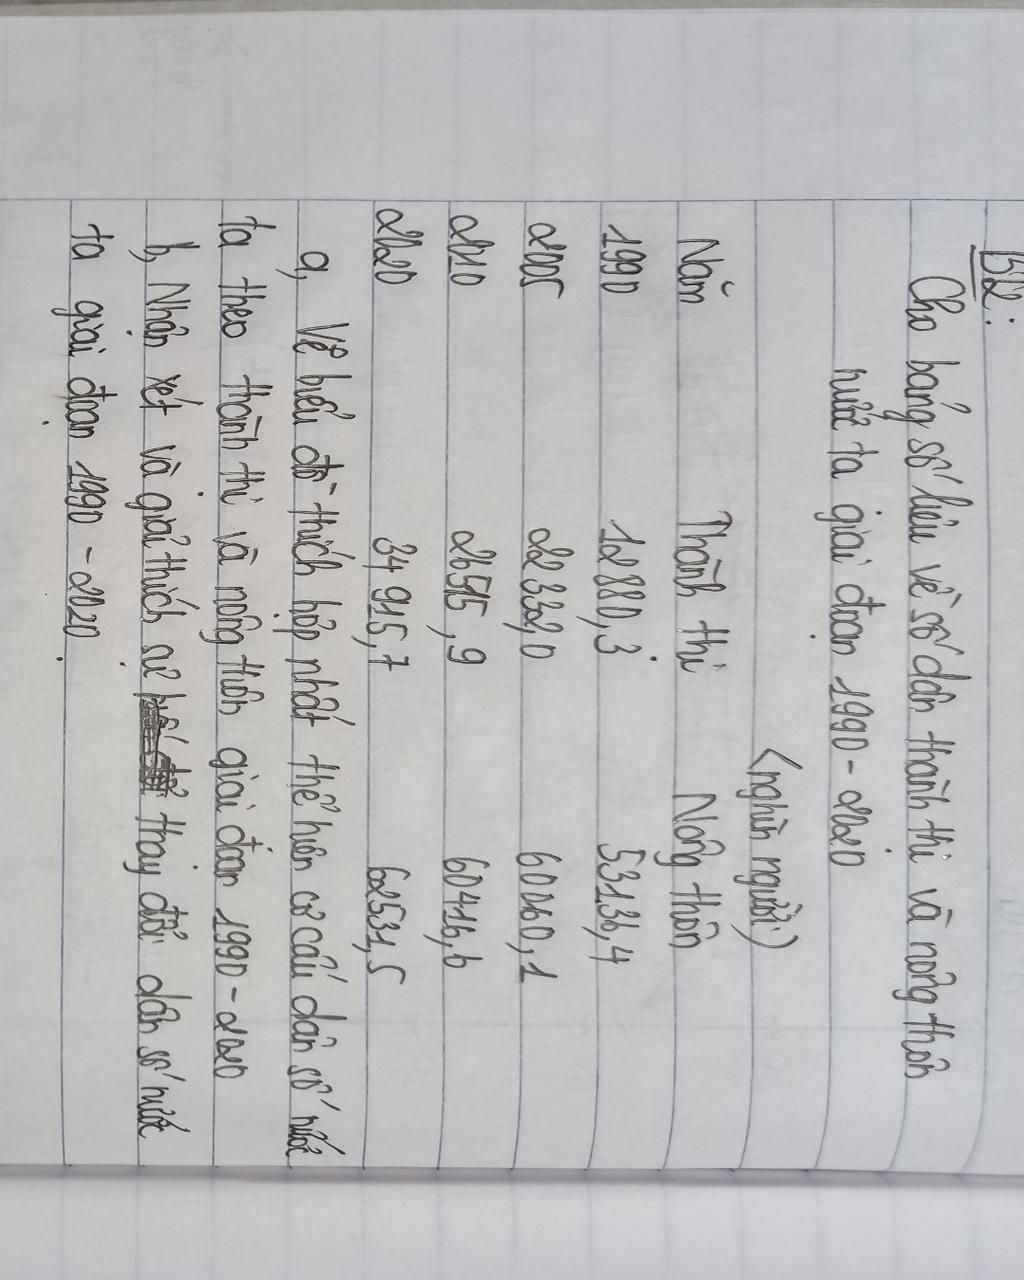 B2:
Cho bảng số liệu về số dân thành thị và nông thôn
nước ta giai đoạn 1990 - 2020
(nghìn người)
Năm Thành thị Nông thôn
1990 12880,3 53136,4
2005 22332,0 60060,1
2010 26515,9 60416,6
2020 34915,7 62531,5
a, Vẽ biểu đồ thích hợp nhất thể hiện cơ cấu dân số nước
ta theo thành thị và nông thôn giai đoạn 1990 - 2020
b, Nhận xét và giải thích sự thay đổi dân số nước
ta giai đoạn 1990 - 2020.